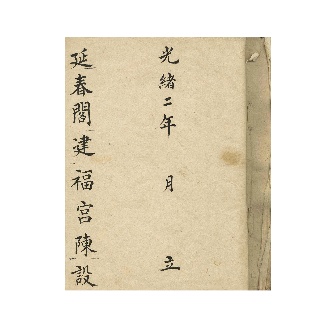 光緒二年 月 立
延春閣建福宮陳設